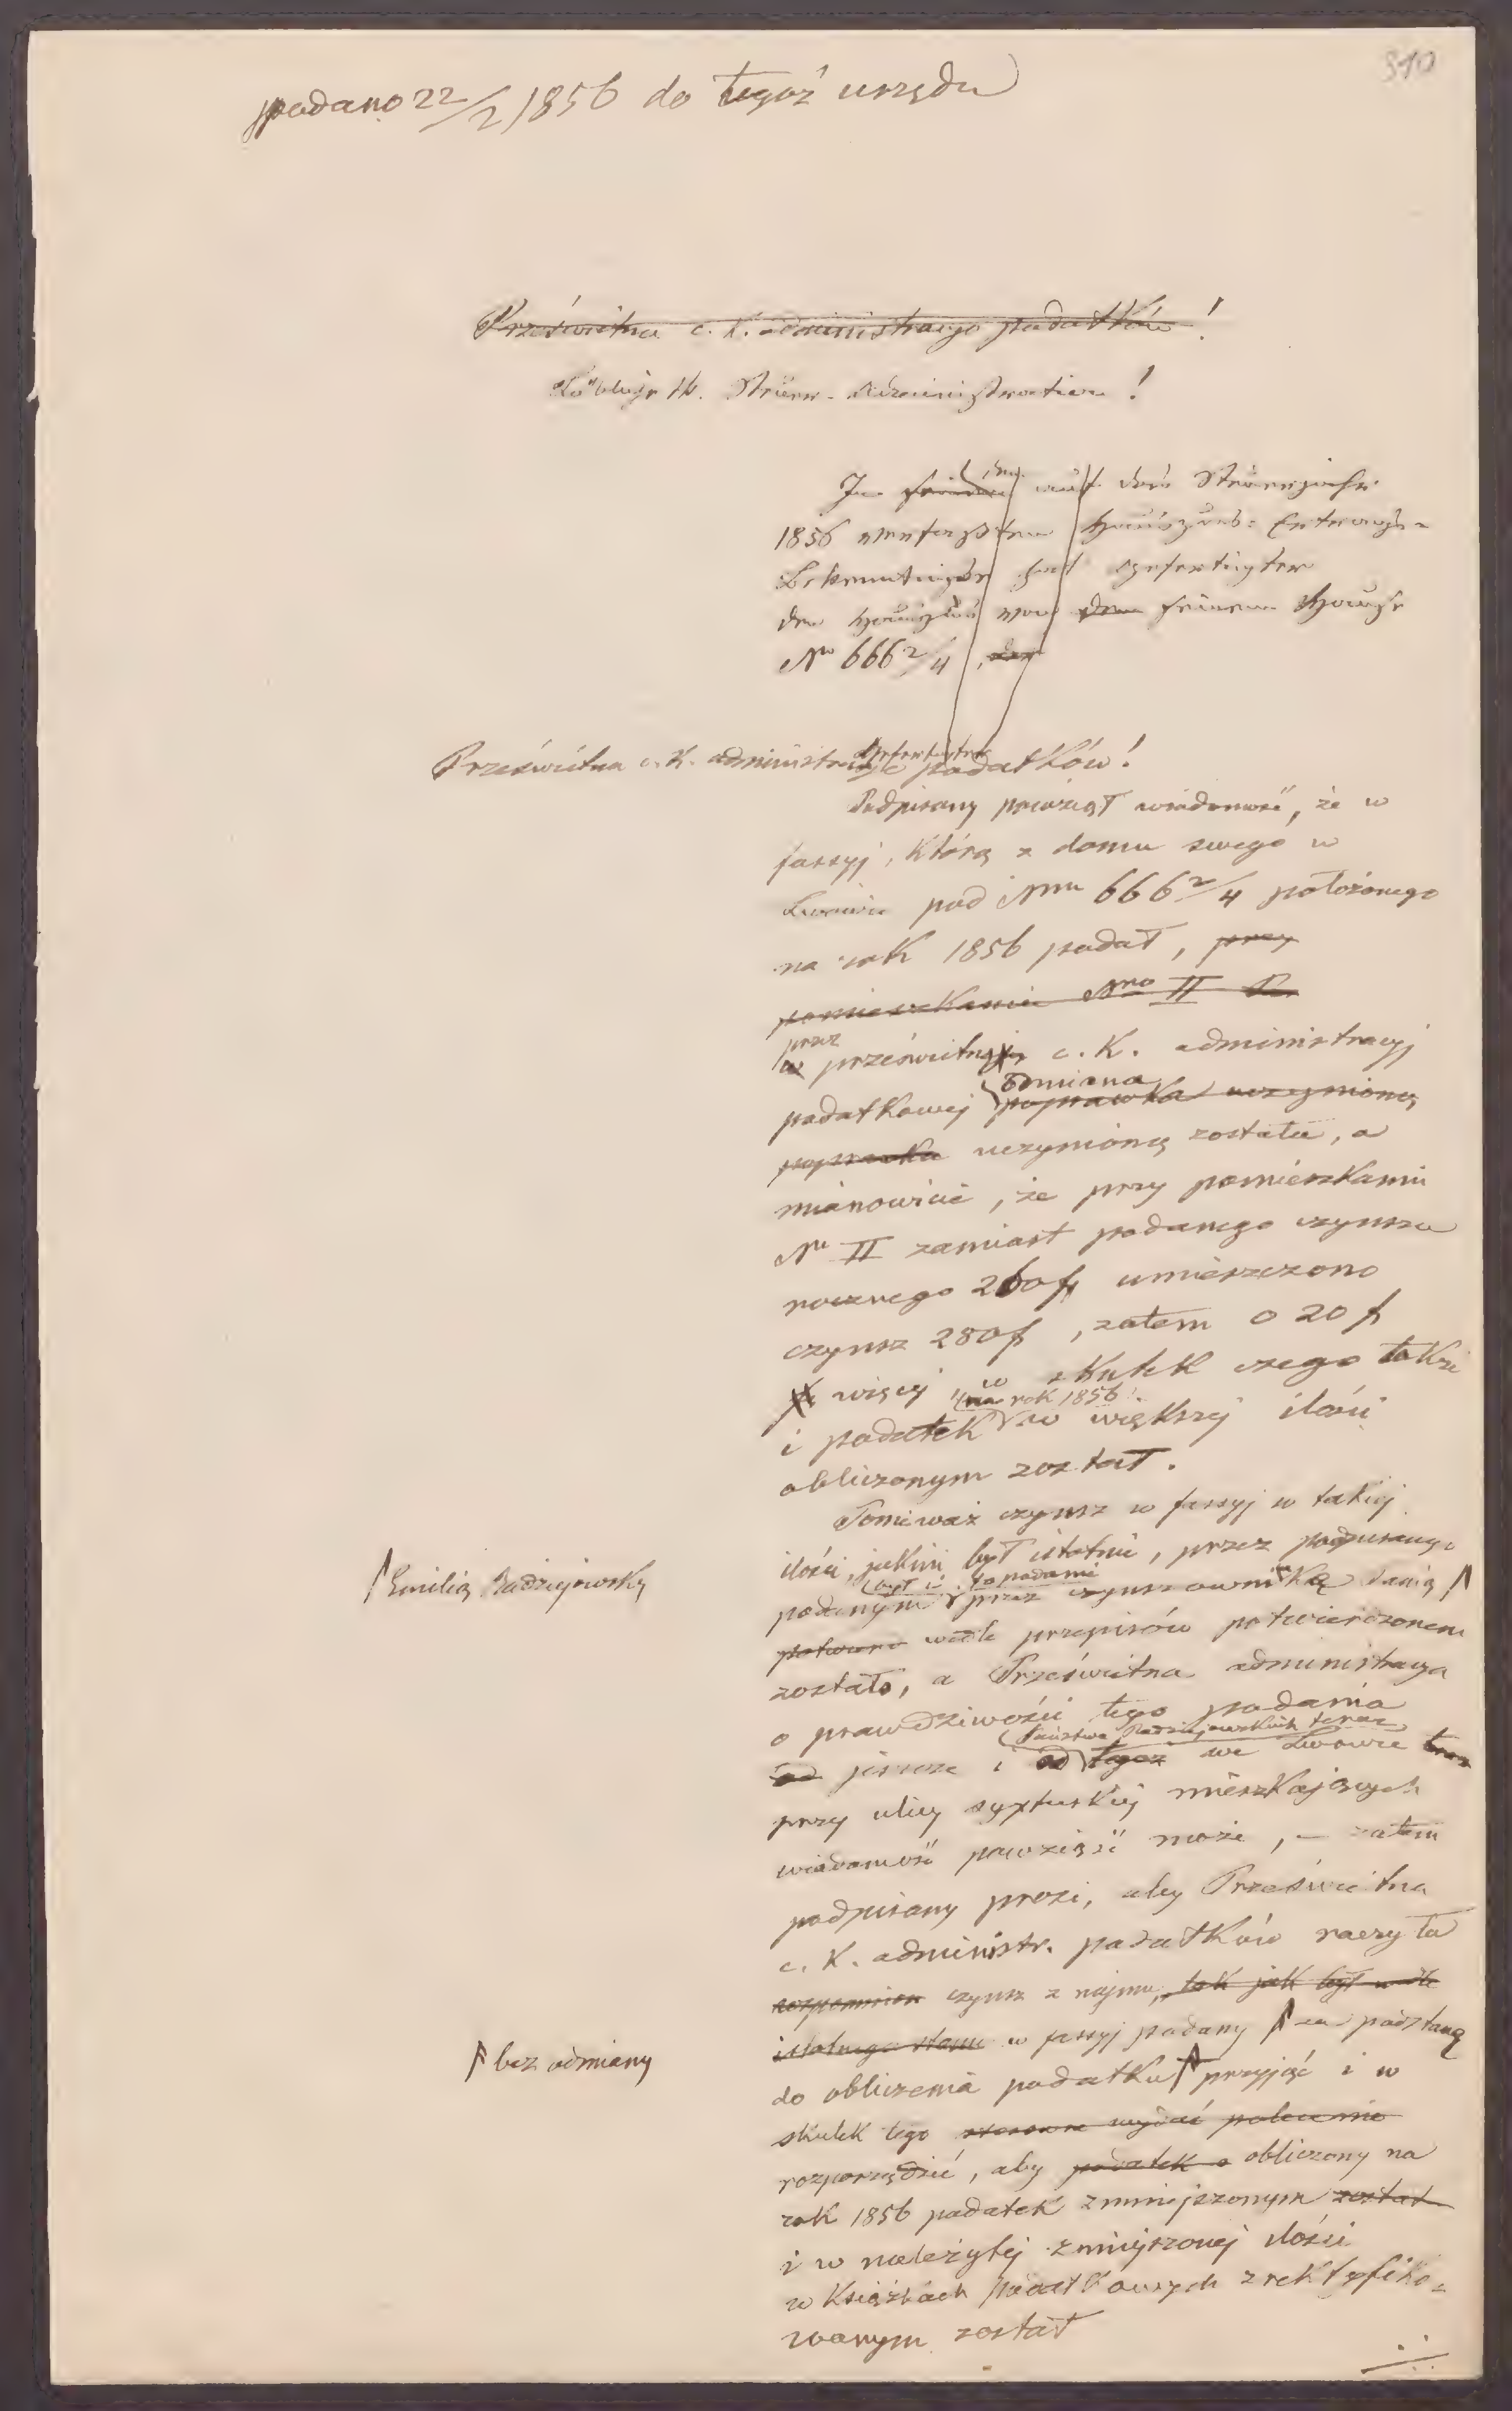 310
podano 22/2 1856 do tegoż urzędu
Prześwietna c. k. administracyo podatków!
Löbliche kk. Steuer-Administration!
In seiner auf das Steuerjahr
1856 verfaßten Hauszins-Ertrags-
Bekenntniße hat Gefertigter
den Hauszins von dem seinem Hause
Nro 666 2/4, der
Gefertigter
Prześwietna c. k. administracyo podatków!
Podpisany powziął wiadomość, że w
fassyj, którą z domu swego w
Lwowie pod Nrm 666 2/4 położonego
na rok 1856 podał, przy
pomieszkaniu Nro II
przez
w prześwietnej c. k. administracyj
odmiana
podatkowej poprawka uczynioną
poprawka uczynioną została, a
mianowicie, że przy pomieszkaniu
Nr II zamiast podanego czynszu
rocznego 260 f umieszczono
czynsz 280 f, zatem o 20 f
więcej w skutek czego także
na rok 1856
i podatek w większej ilości
obliczonym został.
Ponieważ czynsz w fassyj w takiej
ilości, jakim był istotnie, przez podpisanego
był i to podanie
podanym przez czynszownikę Panią
Emilią Radziejowską
potwierd wedle przepisów potwierdzonem
zostało, a Prześwietna administracya
o prawdziwości tego podania
Państwa Radziejowskich teraz
od jeszcze i od tegoż we Lwowie teraz
przy ulicy syxtuskiej mieszkających
wiadomość powziąść może, — zatem
podpisany prosi, aby Prześwietna
c. k. administr. podatków raczyła
czynsz z najmu, tak jak był wedle
istotnego stanu w fassyj podany za podstawę
bez odmiany
do obliczenia podatku przyjąć i w
skutek tego stosowne wydać polecenie
rozporządzić, aby podatek o obliczony na
rok 1856 podatek zmniejszonym został
i w należytej zmniejszonej ilości
w Książkach podatkowych zrektyfiko-
wanym został
./.